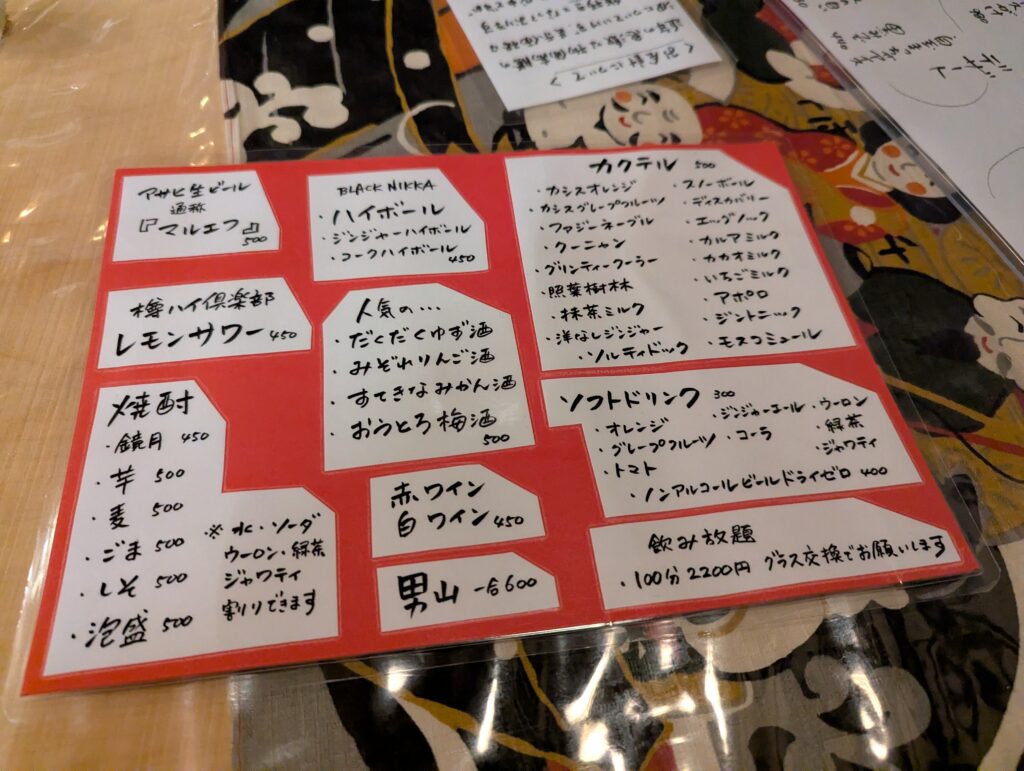 アサヒ生ビール
通称
『マルエフ』
500
樽ハイ倶楽部
レモンサワー 450
焼酎
・鏡月 450
・芋 500
・麦 500
・ごま 500
・しそ 500
・泡盛 500
※水・ソーダ
ウーロン・緑茶
ジャワティ
割りできます
BLACK NIKKA
・ハイボール
・ジンジャーハイボール
・コークハイボール
450
人気の…
・だくだくゆず酒
・みぞれりんご酒
・すてきなみかん酒
・おうとろ梅酒
500
赤ワイン
白ワイン 450
男山 一合600
カクテル 500
・カシスオレンジ
・カシスグレープフルーツ
・ファジーネーブル
・クーニャン
・グリンティークーラー
・照葉樹林
・抹茶ミルク
・洋なしジンジャー
・ソルティドッグ
・スノーボール
・ディスカバリー
・エッグノック
・カルアミルク
・カカオミルク
・いちごミルク
・アポロ
・ジントニック
・モスコミュール
ソフトドリンク 300
・オレンジ
・グレープフルーツ
・トマト
・ジンジャーエール
・コーラ
・ウーロン
・緑茶
・ジャワティ
・ノンアルコールビールドライゼロ 400
飲み放題
・100分 2200円 グラス交換でお願いします
<お会計について>
デザート